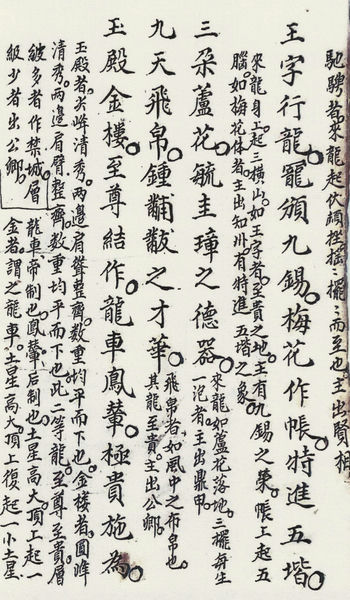 馳騁者來龍起伏頓挫搖〻擺〻而至也主出賢相
王字行龍。寵頒九錫。梅花作帳。特進五揩。
來龍身上起三橫山。如王字者。至貴之地。主有九錫之榮。帳上起五
腦。如梅花体者。主出知州。有特進五揩之象。
三朶蘆花。毓圭璋之德器。
來龍如蘆花落地。三擺并生
一泡者。主出鼎甲。
九天飛帛。鍾黼黻之才華。
飛帛者如風中之布帛也。
其龍至貴。主出公卿。
玉殿金樓。至尊結作。龍車鳳輦。極貴施為。
玉殿者。尖峰清秀。兩邊肩聳整齊。数重均平而下也。金楼者。圓峰
清秀。兩邊肩臂整齊。数重均平而下也。此二等龍。至尊至貴。層
級多者作禁城。層
級少者出公卿。
龍車。帝制也。鳳輦。后制也。土星高大。頂上起一
金者。謂之龍車。土星高大。頂上復起一小土星